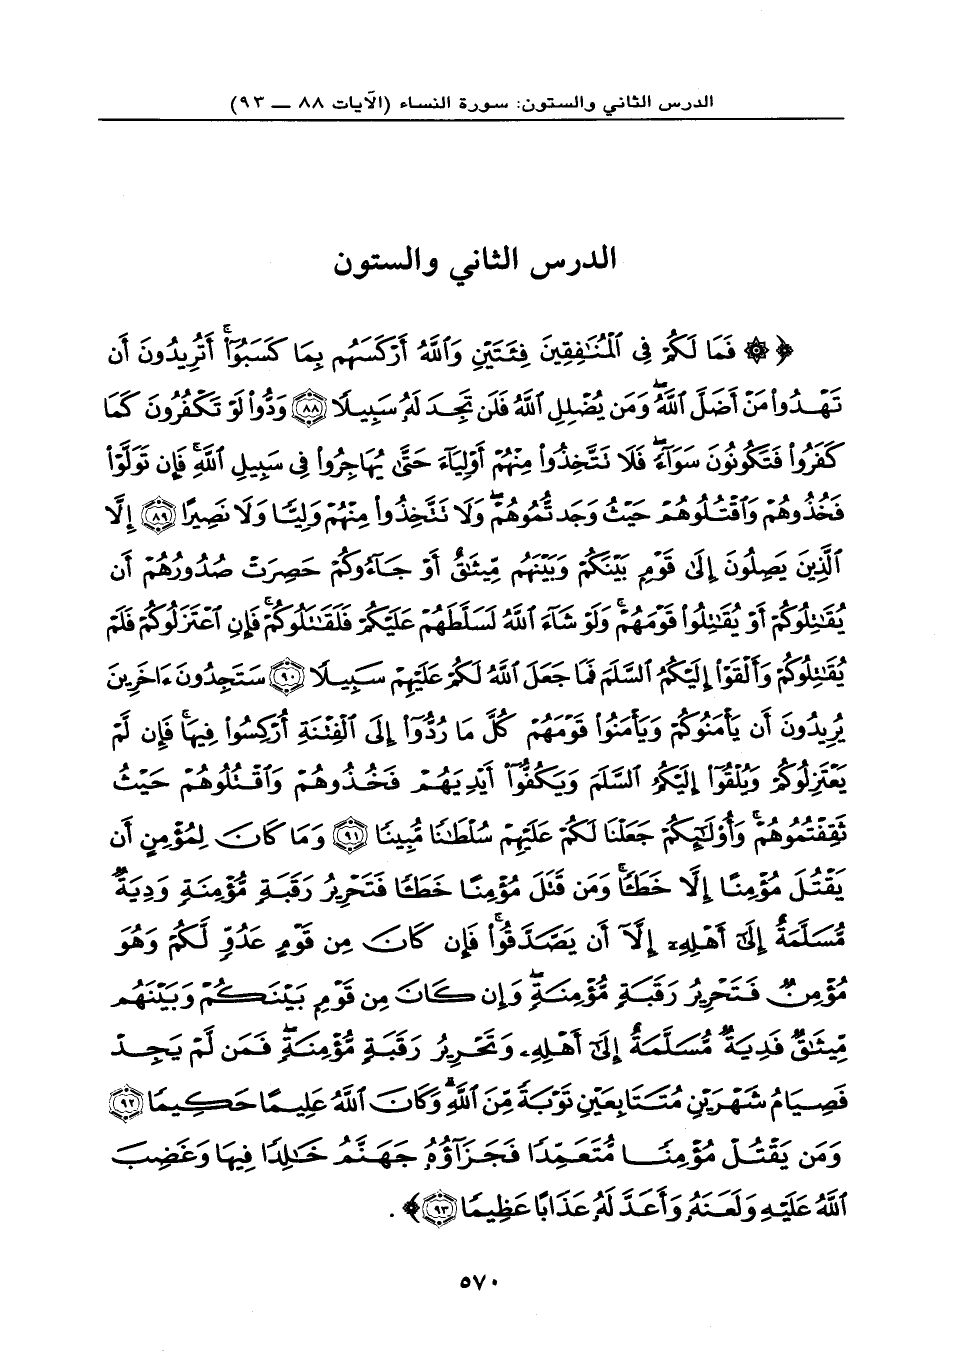 الدرس الثاني والستون: سورة النساء (الآيات ٨٨ — ٩٣)
الدرس الثاني والستون
﴿ ۞ فَمَا لَكُمْ فِى ٱلْمُنَٰفِقِينَ فِئَتَيْنِ وَٱللَّهُ أَرْكَسَهُم بِمَا كَسَبُوٓا۟ ۚ أَتُرِيدُونَ أَن
تَهْدُوا۟ مَنْ أَضَلَّ ٱللَّهُ ۖ وَمَن يُضْلِلِ ٱللَّهُ فَلَن تَجِدَ لَهُۥ سَبِيلًا ﴿٨٨﴾ وَدُّوا۟ لَوْ تَكْفُرُونَ كَمَا
كَفَرُوا۟ فَتَكُونُونَ سَوَآءً ۖ فَلَا تَتَّخِذُوا۟ مِنْهُمْ أَوْلِيَآءَ حَتَّىٰ يُهَاجِرُوا۟ فِى سَبِيلِ ٱللَّهِ ۚ فَإِن تَوَلَّوْا۟
فَخُذُوهُمْ وَٱقْتُلُوهُمْ حَيْثُ وَجَدتُّمُوهُمْ ۖ وَلَا تَتَّخِذُوا۟ مِنْهُمْ وَلِيًّا وَلَا نَصِيرًا ﴿٨٩﴾ إِلَّا
ٱلَّذِينَ يَصِلُونَ إِلَىٰ قَوْمٍ بَيْنَكُمْ وَبَيْنَهُم مِّيثَٰقٌ أَوْ جَآءُوكُمْ حَصِرَتْ صُدُورُهُمْ أَن
يُقَٰتِلُوكُمْ أَوْ يُقَٰتِلُوا۟ قَوْمَهُمْ ۚ وَلَوْ شَآءَ ٱللَّهُ لَسَلَّطَهُمْ عَلَيْكُمْ فَلَقَٰتَلُوكُمْ ۚ فَإِنِ ٱعْتَزَلُوكُمْ فَلَمْ
يُقَٰتِلُوكُمْ وَأَلْقَوْا۟ إِلَيْكُمُ ٱلسَّلَمَ فَمَا جَعَلَ ٱللَّهُ لَكُمْ عَلَيْهِمْ سَبِيلًا ﴿٩٠﴾ سَتَجِدُونَ ءَاخَرِينَ
يُرِيدُونَ أَن يَأْمَنُوكُمْ وَيَأْمَنُوا۟ قَوْمَهُمْ كُلَّ مَا رُدُّوٓا۟ إِلَى ٱلْفِتْنَةِ أُرْكِسُوا۟ فِيهَا ۚ فَإِن لَّمْ
يَعْتَزِلُوكُمْ وَيُلْقُوٓا۟ إِلَيْكُمُ ٱلسَّلَمَ وَيَكُفُّوٓا۟ أَيْدِيَهُمْ فَخُذُوهُمْ وَٱقْتُلُوهُمْ حَيْثُ
ثَقِفْتُمُوهُمْ ۚ وَأُو۟لَٰٓئِكُمْ جَعَلْنَا لَكُمْ عَلَيْهِمْ سُلْطَٰنًا مُّبِينًا ﴿٩١﴾ وَمَا كَانَ لِمُؤْمِنٍ أَن
يَقْتُلَ مُؤْمِنًا إِلَّا خَطَـًٔا ۚ وَمَن قَتَلَ مُؤْمِنًا خَطَـًٔا فَتَحْرِيرُ رَقَبَةٍ مُّؤْمِنَةٍ وَدِيَةٌ
مُّسَلَّمَةٌ إِلَىٰٓ أَهْلِهِۦٓ إِلَّآ أَن يَصَّدَّقُوا۟ ۚ فَإِن كَانَ مِن قَوْمٍ عَدُوٍّ لَّكُمْ وَهُوَ
مُؤْمِنٌ فَتَحْرِيرُ رَقَبَةٍ مُّؤْمِنَةٍ ۖ وَإِن كَانَ مِن قَوْمٍ بَيْنَكُمْ وَبَيْنَهُم
مِّيثَٰقٌ فَدِيَةٌ مُّسَلَّمَةٌ إِلَىٰٓ أَهْلِهِۦ وَتَحْرِيرُ رَقَبَةٍ مُّؤْمِنَةٍ ۖ فَمَن لَّمْ يَجِدْ
فَصِيَامُ شَهْرَيْنِ مُتَتَابِعَيْنِ تَوْبَةً مِّنَ ٱللَّهِ ۗ وَكَانَ ٱللَّهُ عَلِيمًا حَكِيمًا ﴿٩٢﴾
وَمَن يَقْتُلْ مُؤْمِنًا مُّتَعَمِّدًا فَجَزَآؤُهُۥ جَهَنَّمُ خَٰلِدًا فِيهَا وَغَضِبَ
ٱللَّهُ عَلَيْهِ وَلَعَنَهُۥ وَأَعَدَّ لَهُۥ عَذَابًا عَظِيمًا ﴿٩٣﴾ ﴾ .
٥٧٠